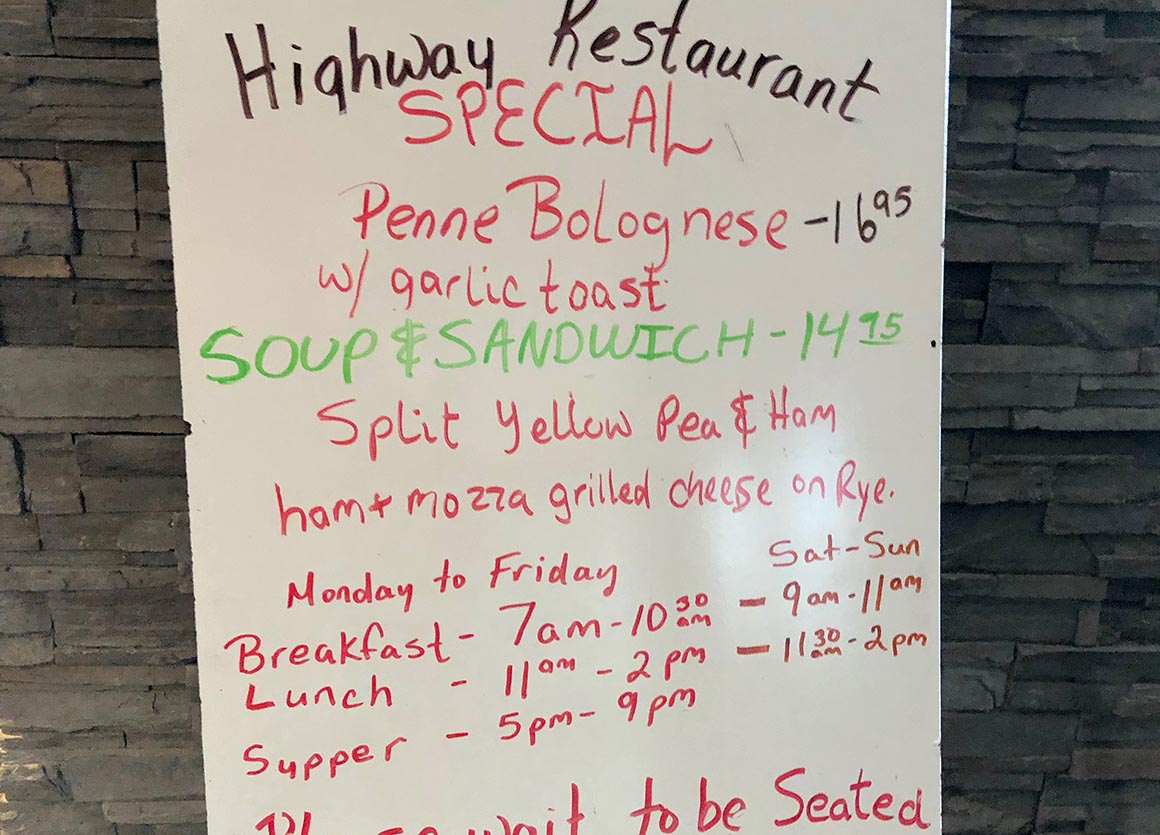 Highway Restaurant
SPECIAL
Penne Bolognese - 16 95
w/ garlic toast
SOUP & SANDWICH - 14 95
Split Yellow Pea & Ham
ham + mozza grilled cheese on Rye.
Monday to Friday Sat-Sun
Breakfast - 7am - 10 30 am - 9am - 11am
Lunch - 11am - 2pm - 11 30 am - 2pm
Supper - 5pm - 9pm
wait to be Seated